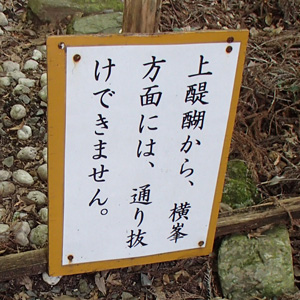 上醍醐から、横峯
方面には、通り抜
けできません。